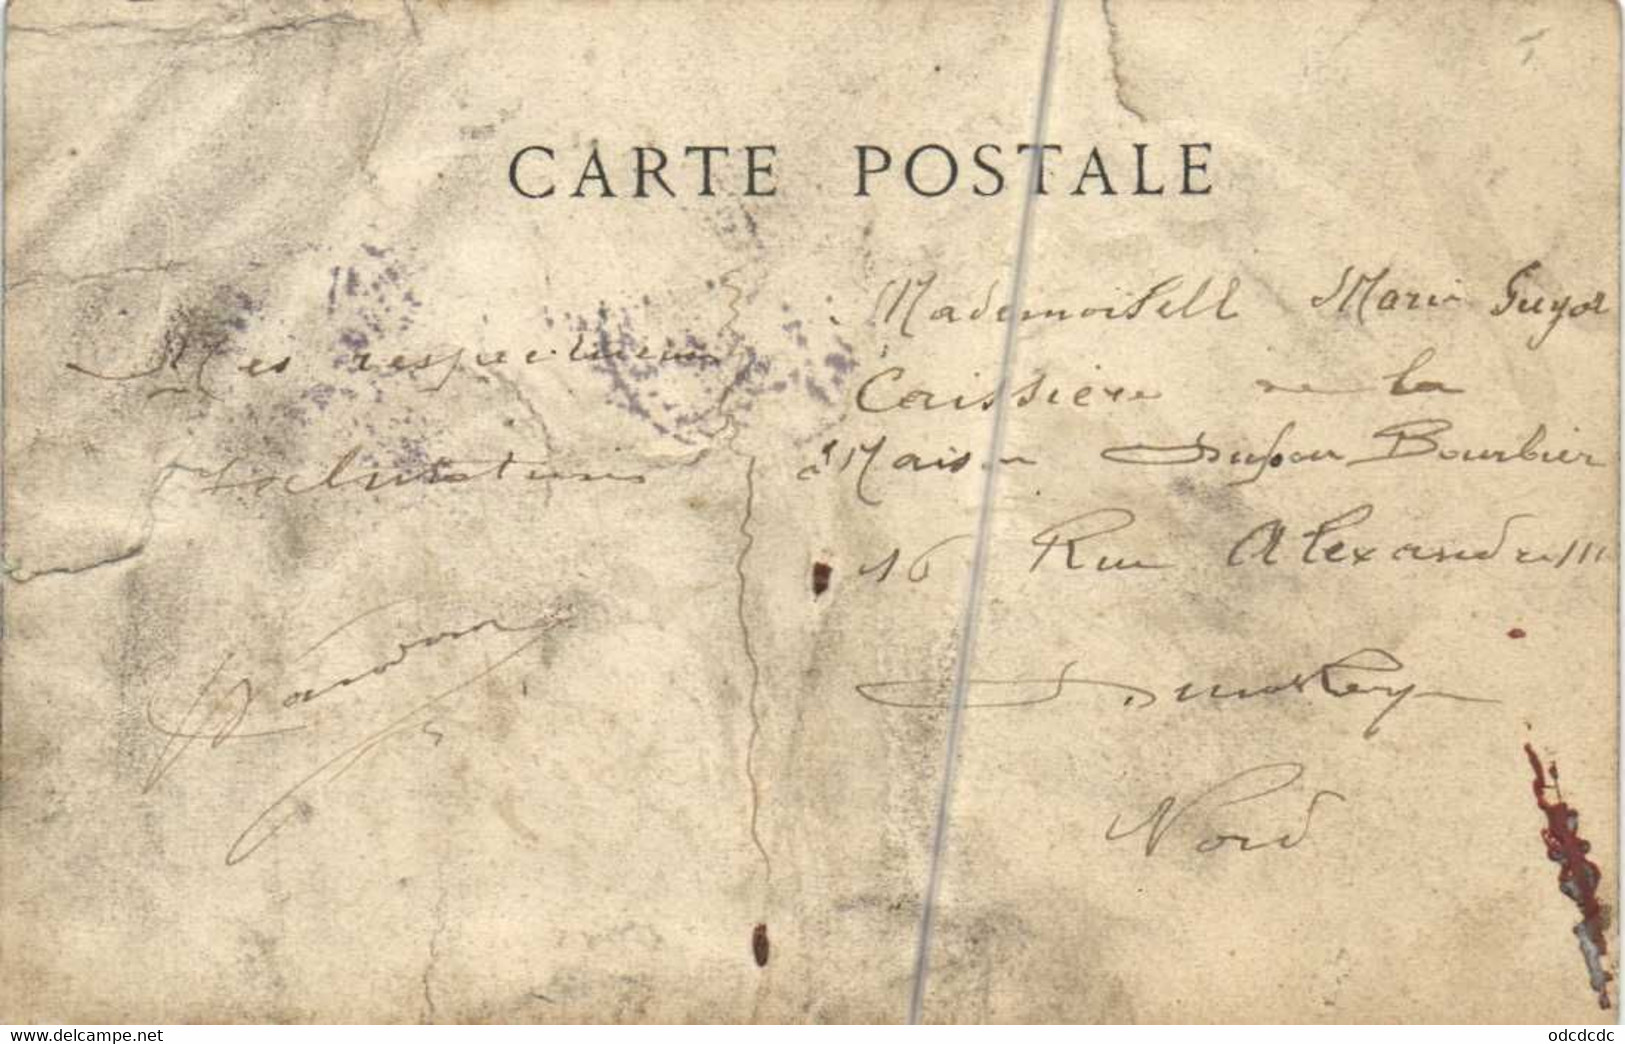 CARTE POSTALE
Mes respectueuses
salutations
Mademoisell Marie Guyot
Caissière de la
Maison Dupon Bourbier
16 Rue Alexandre III
Dunkerq
Nord
delcampe.net
odcdcdc